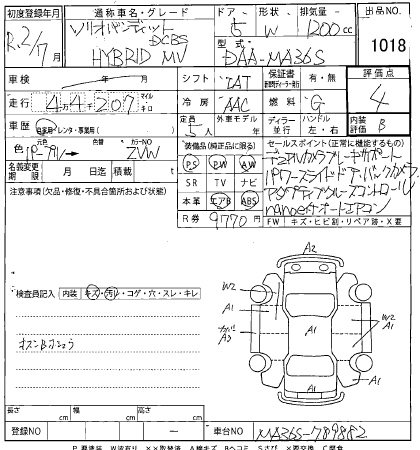 初度登録年月 通称車名・グレード ドア・形状 排気量 出品NO.
R.2/7月 ソリオバンディット 5 W 1200cc 1018
HYBRID MV DCBS 型式 DAA-MA36S
車検 年 月 シフト IAT 保証書 有・無 評価点
走行 44,207 マイル キロ 冷房 AAC 燃料 G 4
車歴 自家用・レンタ・事業用 定員 5人 外車モデル ディーラー 並行 ハンドル 左・右 内装評価 B
色 元色 パープル 色替 カラーNO ZVW 装備品(純正品に限る) セールスポイント(正常に機能するもの)
名義変更期限 月 日迄 積載 PS PW AW デュアルカメラブレーキサポート
注意事項(欠品・修復・不具合箇所および状態) SR TV ナビ パワースライドドア・バックカメラ
本革 エアB ABS アダプティブクルーズコントロール
R券 9770円 nanoeオートエアコン
FW キズ・ヒビ割・リペア跡・X要
A2
検査員記入 内装 キズ・汚レ・コゲ・穴・スレ・キレ
W2 A1 A1 W2 A1
A3 A1 A1
長さ cm 幅 cm 高さ cm
登録NO 車台NO MA36S-789882